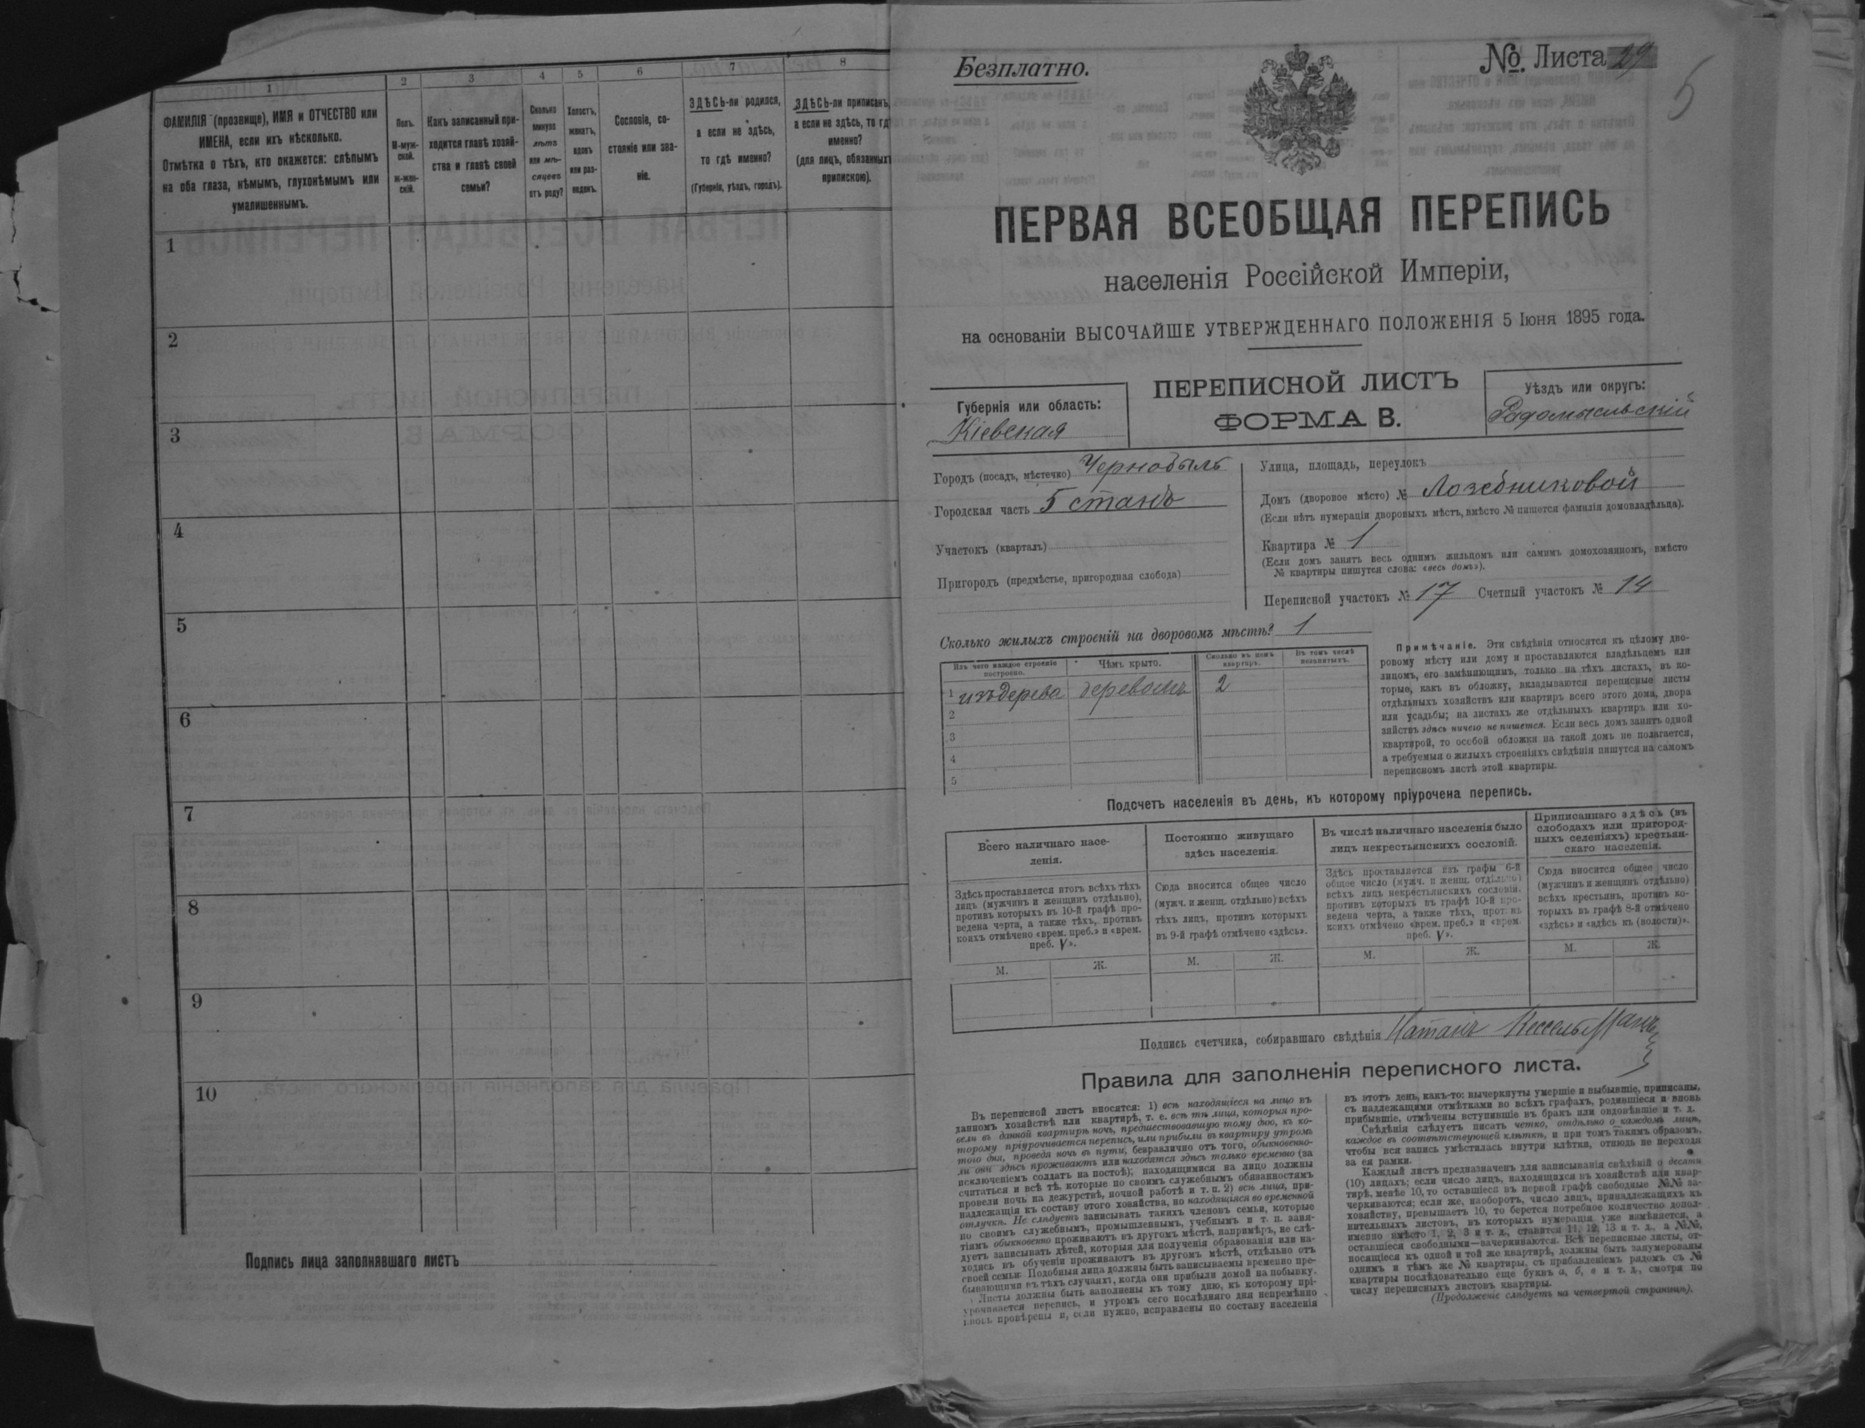 1
2
3
4
5
6
7
8
ФАМИЛІЯ (прозвище), ИМЯ и ОТЧЕСТВО или
ИМЕНА, если ихъ нѣсколько.
Отмѣтка о тѣхъ, кто окажется: слѣпымъ
на оба глаза, нѣмымъ, глухонѣмымъ или
умалишеннымъ.
Полъ.
М-муж-
ской.
Ж-жен-
скій.
Какъ записанный при-
ходится главѣ хозяй-
ства и главѣ своей
семьи?
Сколько
минуло
лѣтъ
или мѣ-
сяцевъ
отъ роду?
Холостъ,
женатъ,
вдовъ
или раз-
веденъ.
Сословіе, со-
стояніе или зва-
ніе.
ЗДѢСЬ-ли родился,
а если не здѣсь,
то гдѣ именно?
(Губернія, уѣздъ, городъ).
ЗДѢСЬ-ли приписанъ,
а если не здѣсь, то гдѣ
именно?
(для лицъ, обязанныхъ
припискою).
1
2
3
4
5
6
7
8
9
10
Подпись лица заполнявшаго листъ
Безплатно.
№ Листа 29
5
ПЕРВАЯ ВСЕОБЩАЯ ПЕРЕПИСЬ
населенія Россійской Имперіи,
на основаніи ВЫСОЧАЙШЕ УТВЕРЖДЕННАГО ПОЛОЖЕНІЯ 5 Іюня 1895 года.
Губернія или область:
Кіевская
ПЕРЕПИСНОЙ ЛИСТЪ
ФОРМА В.
Уѣздъ или округъ:
Радомысльскій
Городъ (посадъ, мѣстечко) Чернобыль
Городская часть 5 станъ
Участокъ (кварталъ)
Пригородъ (предмѣстье, пригородная слобода)
Улица, площадь, переулокъ
Домъ (дворовое мѣсто) №
(Если нѣтъ нумераціи дворовыхъ мѣстъ, вмѣсто № пишется фамилія домовладѣльца).
Квартира № 1
(Если домъ занятъ весь однимъ жильцомъ или самимъ домохозяиномъ, вмѣсто
№ квартиры пишутся слова: «весь домъ»).
Переписной участокъ № 17 Счетный участокъ № 14
Сколько жилыхъ строеній на дворовомъ мѣстѣ? 1
Изъ чего каждое строеніе
построено.
Чѣмъ крыто.
Сколько въ немъ
квартиръ.
Въ томъ числѣ
незанятыхъ.
1 изъ дерева деревомъ 2
2
3
4
5
Примѣчаніе. Эти свѣдѣнія относятся къ цѣлому дво-
ровому мѣсту или дому и проставляются владѣльцемъ или
лицомъ, его замѣняющимъ, только на тѣхъ листахъ, въ ко-
торые, какъ въ обложку, вкладываются переписные листы
отдѣльныхъ хозяйствъ или квартиръ всего этого дома, двора
или усадьбы; на листахъ же отдѣльныхъ квартиръ или хо-
зяйствъ здѣсь ничего не пишется. Если весь домъ занятъ одной
квартирой, то особой обложки на такой домъ не полагается,
а требуемыя о жилыхъ строеніяхъ свѣдѣнія пишутся на самомъ
переписномъ листѣ этой квартиры.
Подсчетъ населенія въ день, къ которому пріурочена перепись.
Всего наличнаго насе-
ленія.
Здѣсь проставляется итогъ всѣхъ тѣхъ
лицъ (мужчинъ и женщинъ отдѣльно),
противъ которыхъ въ 10-й графѣ про-
ведена черта, а также тѣхъ, противъ
коихъ отмѣчено «врем. преб.» и «врем.
преб. V».
М. Ж.
Постоянно живущаго
здѣсь населенія.
Сюда вносится общее число
(мужч. и женщ. отдѣльно) всѣхъ
тѣхъ лицъ, противъ которыхъ
въ 9-й графѣ отмѣчено «здѣсь».
М. Ж.
Въ числѣ наличнаго населенія было
лицъ некрестьянскихъ сословій.
Здѣсь проставляется изъ графы 6-й
общее число (мужч. и женщ. отдѣльно)
всѣхъ лицъ некрестьянскихъ сословій,
противъ которыхъ въ графѣ 10-й про-
ведена черта, а также тѣхъ, противъ
коихъ отмѣчено «врем. преб.» и «врем.
преб. V».
М. Ж.
Приписаннаго здѣсь (въ
слободахъ или пригород-
ныхъ селеніяхъ) крестьян-
скаго населенія.
Сюда вносится общее число
(мужчинъ и женщинъ отдѣльно)
всѣхъ крестьянъ, противъ ко-
торыхъ въ графѣ 8-й отмѣчено
«здѣсь» и «здѣсь къ (волости)».
М. Ж.
Подпись счетчика, собиравшаго свѣдѣнія Натанъ Кессельманъ
Правила для заполненія переписного листа.
Въ переписной листъ вносятся: 1) всѣ находящіеся на лицо въ
данномъ хозяйствѣ или квартирѣ, т. е. всѣ тѣ лица, которыя про-
вели въ данной квартирѣ ночь, предшествовавшую тому дню, къ ко-
торому пріурочивается перепись, или прибыли въ квартиру утромъ
того дня, проведя ночь въ пути, безразлично отъ того, обыкновенно-
ли они здѣсь проживаютъ или находятся здѣсь только временно (за
исключеніемъ солдатъ на постоѣ); находящимися на лицо должны
считаться и всѣ тѣ, которые по своимъ служебнымъ обязанностямъ
провели ночь на дежурствѣ, ночной работѣ и т. п. 2) всѣ лица, при-
надлежащія къ составу этого хозяйства, но находящіяся во временной
отлучкѣ. Не слѣдуетъ записывать такихъ членовъ семьи, которые
по своимъ служебнымъ, промышленнымъ, учебнымъ и т. п. заня-
тіямъ обыкновенно проживаютъ въ другомъ мѣстѣ, напримѣръ, не слѣ-
дуетъ записывать дѣтей, которыя для полученія образованія или на-
ходясь въ обученіи проживаютъ въ другомъ мѣстѣ, отдѣльно отъ
своей семьи. Подобныя лица должны быть записываемы временно пре-
бывающими въ тѣхъ случаяхъ, когда они прибыли домой на побывку.
Листы должны быть заполнены къ тому дню, къ которому прі-
урочивается перепись, и утромъ сего послѣдняго дня непремѣнно
вновь провѣрены и, если нужно, исправлены по составу населенія
въ этотъ день, какъ-то: вычеркнуты умершіе и выбывшіе, приписаны,
съ надлежащими отмѣтками во всѣхъ графахъ, родившіеся и вновь
прибывшіе, отмѣчены вступившіе въ бракъ или овдовѣвшіе и т. д.
Свѣдѣнія слѣдуетъ писать четко, отдѣльно о каждомъ лицѣ,
каждое въ соотвѣтствующей клѣткѣ, и при томъ такимъ образомъ,
чтобы вся запись умѣстилась внутри клѣтки, отнюдь не переходя
за ея рамки.
Каждый листъ предназначенъ для записыванія свѣдѣній о десяти
(10) лицахъ; если число лицъ, находящихся въ хозяйствѣ или квар-
тирѣ, менѣе 10, то оставшіеся въ первой графѣ свободные №№ за-
черкиваются; если же, наоборотъ, число лицъ, принадлежащихъ къ
хозяйству, превышаетъ 10, то берется потребное количество допол-
нительныхъ листовъ, въ которыхъ нумерація уже измѣняется, а
именно вмѣсто 1, 2, 3 и т. д., ставятся 11, 12, 13 и т. д., а №№,
оставшіеся свободными—зачеркиваются. Всѣ переписные листы, от-
носящіеся къ одной и той же квартирѣ, должны быть занумерованы
однимъ и тѣмъ же № квартиры, съ прибавленіемъ рядомъ съ №
квартиры послѣдовательно еще буквъ а, б, в и т. д., смотря по
числу переписныхъ листовъ квартиры.
(Продолженіе слѣдуетъ на четвертой страницѣ).